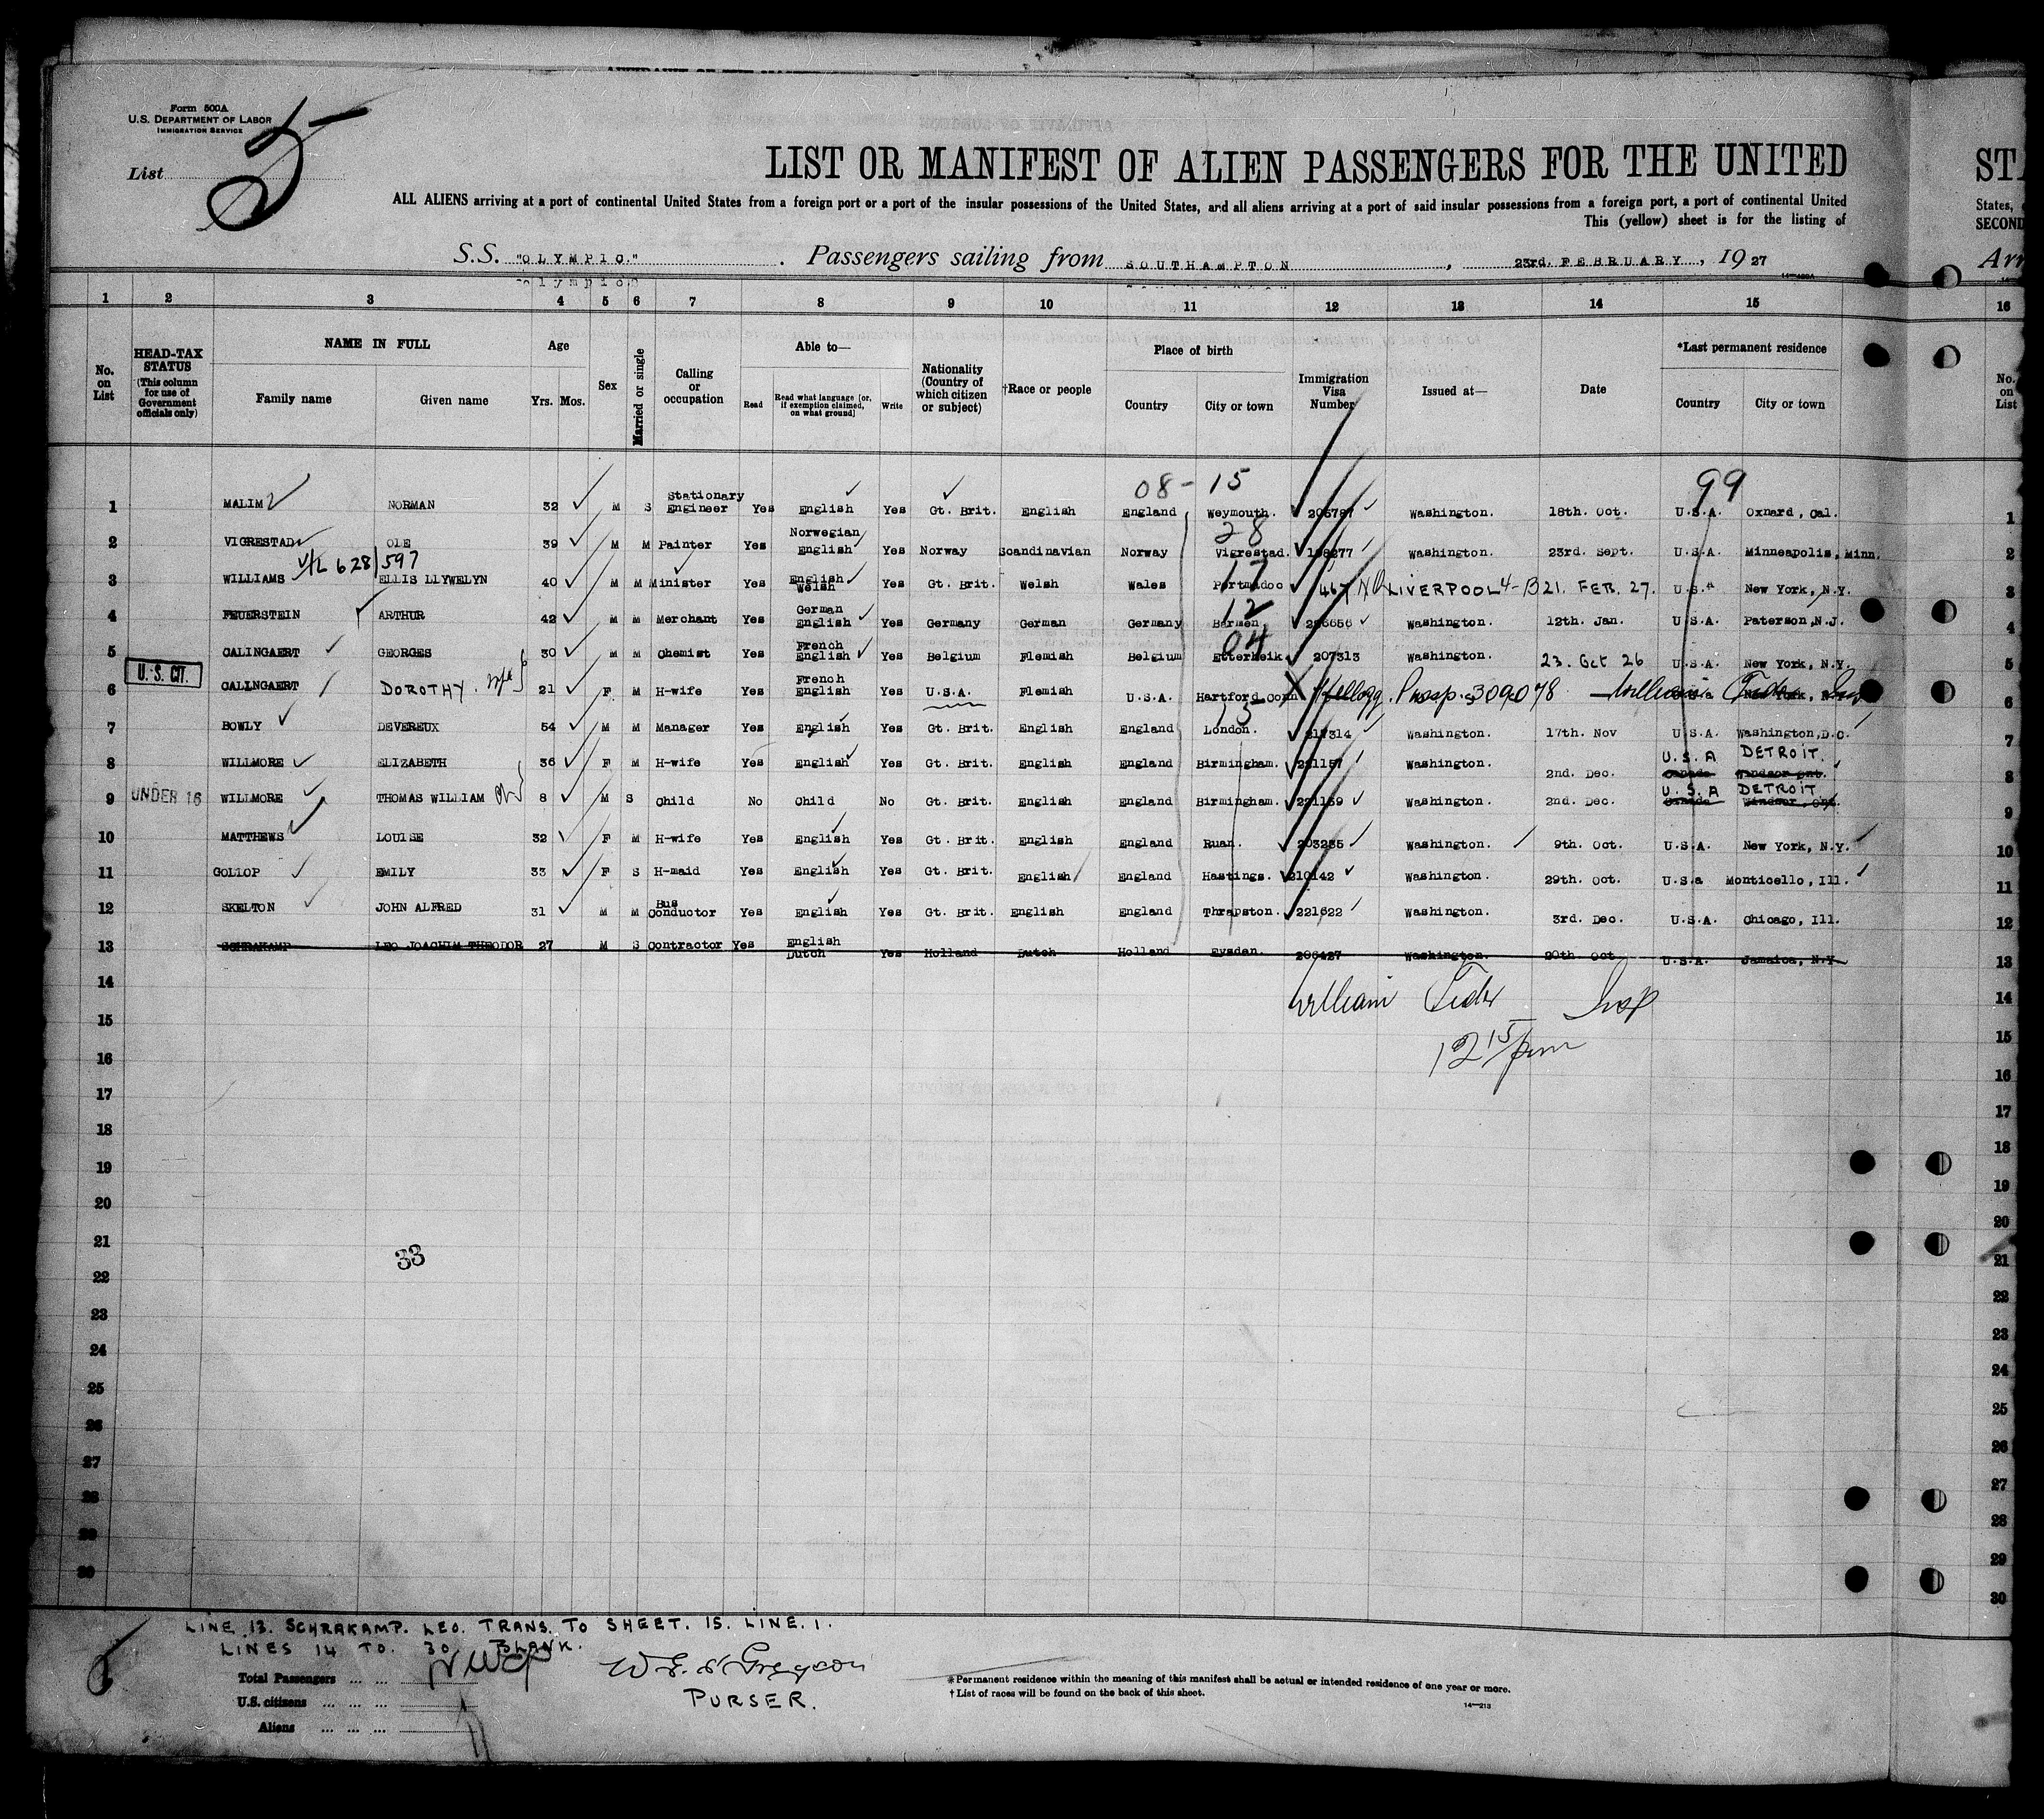 Form 500A
U.S. DEPARTMENT OF LABOR
IMMIGRATION SERVICE
List 5
LIST OR MANIFEST OF ALIEN PASSENGERS FOR THE UNITED
ALL ALIENS arriving at a port of continental United States from a foreign port or a port of the insular possessions of the United States, and all aliens arriving at a port of said insular possessions from a foreign port, a port of continental United
This (yellow) sheet is for the listing of
S.S. "OLYMPIC." Passengers sailing from SOUTHAMPTON, 23rd. FEBRUARY, 1927
1 2 3 4 5 6 7 8 9 10 11 12 13 14 15 16
No. on List
HEAD-TAX STATUS (This column for use of Government officials only)
NAME IN FULL
Family name Given name
Age
Yrs. Mos.
Sex
Married or single
Calling or occupation
Able to—
Read Read what language (or, if exemption claimed, on what ground) Write
Nationality (Country of which citizen or subject)
†Race or people
Place of birth
Country City or town
Immigration Visa Number
Issued at—
Date
*Last permanent residence
Country City or town
No. on List
08-15 99
1 MALIM NORMAN 32 M S Stationary Engineer Yes English Yes Gt. Brit. English England Weymouth. Washington. 18th. Oct. U.S.A. Oxnard, Cal. 1
28
2 VIGRESTAD OLE 39 M M Painter Yes Norwegian English Yes Norway Scandinavian Norway Vigrestad. Washington. 23rd. Sept. U.S.A. Minneapolis, Minn. 2
V/L 628/597
3 WILLIAMS ELLIS LLYWELYN 40 M M Minister Yes English Welsh Yes Gt. Brit. Welsh Wales Portmadoc 467 LIVERPOOL 21. FEB. 27. New York, N.Y. 3
12
4 FEUERSTEIN ARTHUR 42 M M Merchant Yes German English Yes Germany German Germany Barmen. Washington. 12th. Jan. U.S.A. Paterson, N.J. 4
04
5 CALINGAERT GEORGES 30 M M Chemist Yes French English Yes Belgium Flemish Belgium Etterbeik 207313 Washington. 23. Oct 26 U.S.A. New York, N.Y. 5
U.S. CIT.
6 CALINGAERT DOROTHY. wife 21 F M H-wife Yes French English Yes U.S.A. Flemish U.S.A. Hartford Conn Kellogg. Passp. 309078 6
13
7 BOWLY DEVEREUX 54 M M Manager Yes English Yes Gt. Brit. English England London. 217314 Washington. 17th. Nov U.S.A. Washington, D.C. 7
U.S.A DETROIT.
8 WILLMORE ELIZABETH 36 F M H-wife Yes English Yes Gt. Brit. English England Birmingham. 221157 Washington. 2nd. Dec. Canada Windsor Ont. 8
U.S.A DETROIT
9 UNDER 16 WILLMORE THOMAS WILLIAM 8 M S Child No Child No Gt. Brit. English England Birmingham. 221159 Washington. 2nd. Dec. Canada Windsor, Ont. 9
10 MATTHEWS LOUISE 32 F M H-wife Yes English Yes Gt. Brit. English England Ruan. 203235 Washington. 9th. Oct. U.S.A. New York, N.Y. 10
11 GOLLOP EMILY 33 F S H-maid Yes English Yes Gt. Brit. English England Hastings. 210142 Washington. 29th. Oct. U.S.a Monticello, Ill. 11
12 SKELTON JOHN ALFRED 31 M M Bus Conductor Yes English Yes Gt. Brit. English England Thrapston. 221622 Washington. 3rd. Dec. U.S.A. Chicago, Ill. 12
13 SCHRAKAMP LEO JOACHIM THEODOR 27 M S Contractor Yes English Dutch Yes Holland Dutch Holland Eysden. 206427 Washington. 20th Oct U.S.A. Jamaica, N.Y. 13
14 William Insp 14
15 12 15/pm 15
16 16
17 17
18 18
19 19
20 20
21 33 21
22 22
23 23
24 24
25 25
26 26
27 27
28 28
29 29
30 30
LINE 13. SCHRAKAMP. LEO. TRANS. TO SHEET. 15. LINE. 1.
LINES 14 TO. 30 BLANK.
Total Passengers ... ...
U.S. citizens ... ... ...
Aliens ... ... ...
PURSER.
*Permanent residence within the meaning of this manifest shall be actual or intended residence of one year or more.
†List of races will be found on the back of this sheet.
14—213